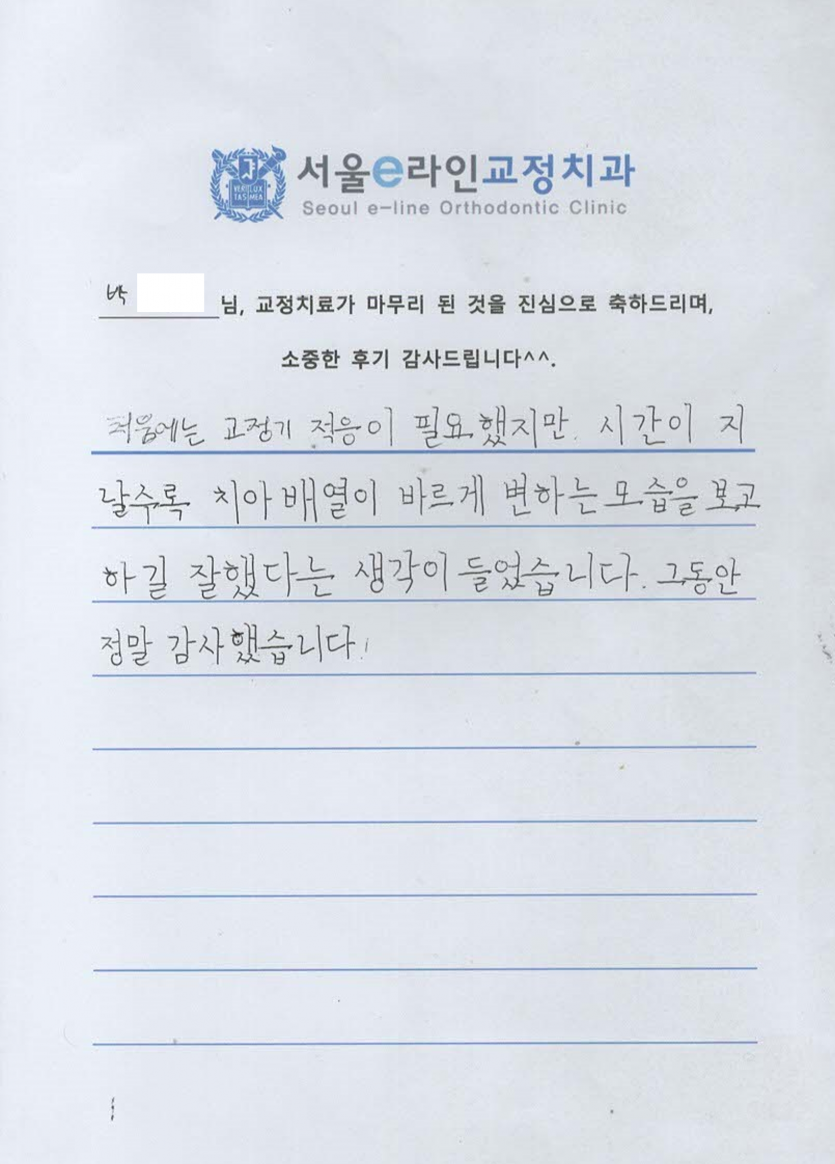 VERI LUX
TAS MEA
서울e라인교정치과
Seoul e-line Orthodontic Clinic
박 님, 교정치료가 마무리 된 것을 진심으로 축하드리며,
소중한 후기 감사드립니다^^.
처음에는 교정기 적응이 필요했지만, 시간이 지
날수록 치아배열이 바르게 변하는 모습을 보고
하길 잘했다는 생각이 들었습니다. 그동안
정말 감사했습니다!